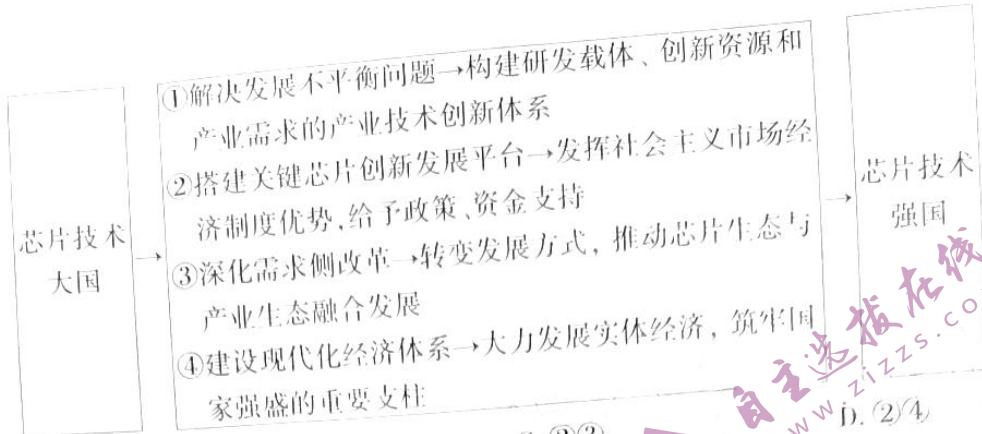 芯片技术
大国
→
①解决发展不平衡问题→构建研发载体、创新资源和
产业需求的产业技术创新体系
②搭建关键芯片创新发展平台→发挥社会主义市场经
济制度优势,给予政策、资金支持
③深化需求侧改革→转变发展方式，推动芯片生态与
产业生态融合发展
④建设现代化经济体系→大力发展实体经济，筑牢国
家强盛的重要支柱
→
芯片技术
强国
D. ②④
自主选拔在线
www.zizzs.co